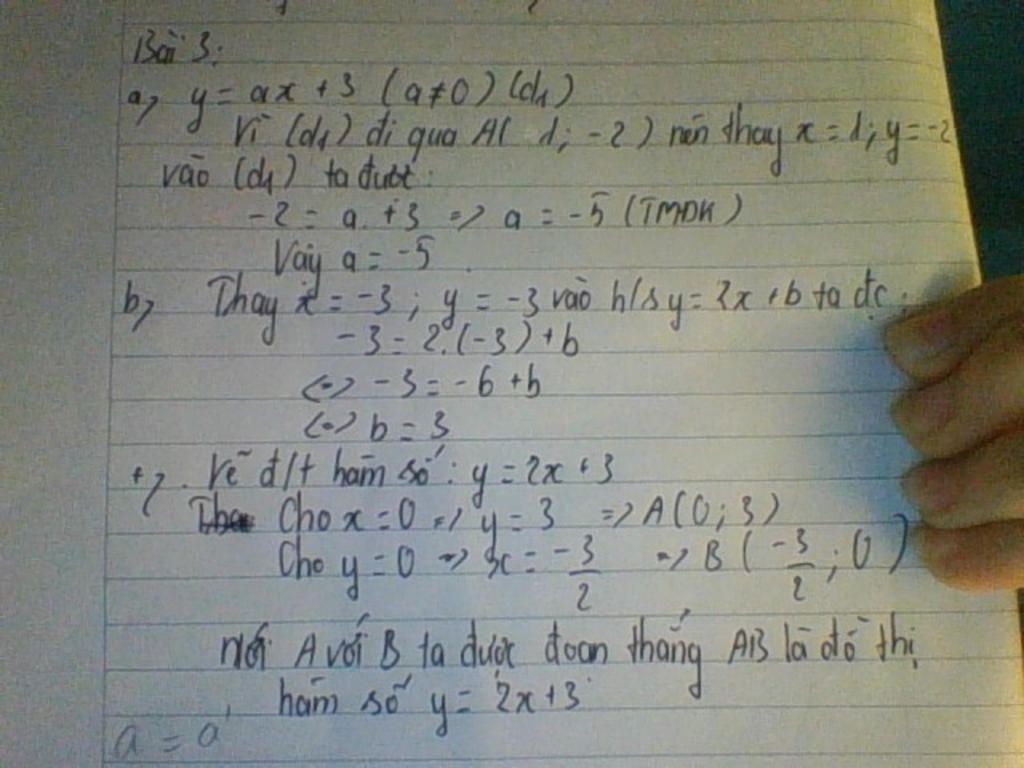 Bài 3:
a, y = ax + 3 (a ≠ 0) (d1)
Vì (d1) đi qua A( 1; -2) nên thay x = 1; y = -2
vào (d1) ta được:
-2 = a. +3 => a = -5 (TMĐK)
Vậy a = -5.
b, Thay x = -3; y = -3 vào h/s y = 2x + b ta đc:
-3 = 2.(-3) + b
<=> -3 = -6 + b
<=> b = 3
+, Vẽ đ/t hàm số: y = 2x + 3
Cho x = 0 => y = 3 => A(0; 3)
Cho y = 0 => x = -3/2 => B (-3/2; 0)
Nối A với B ta được đoạn thẳng AB là đồ thị
hàm số y = 2x + 3
a = a'